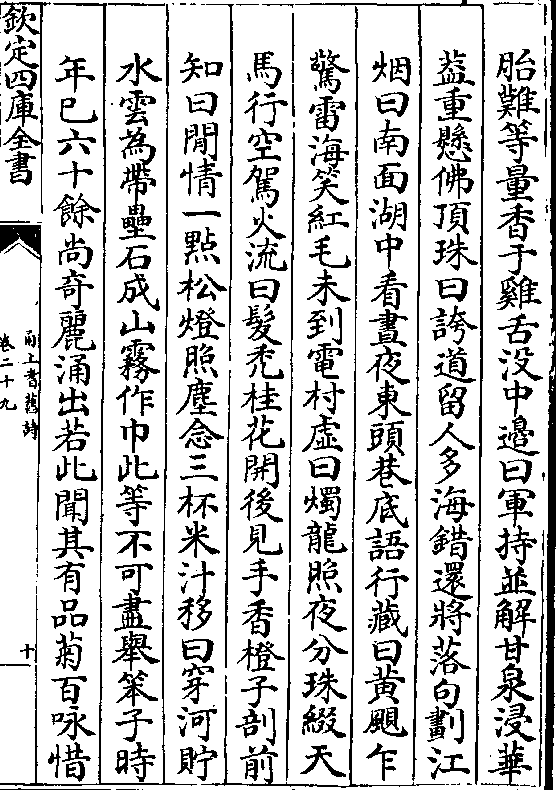 胎難等量香于雞舌没中邊曰軍持並解甘泉浸華
葢重懸佛頂珠曰誇道留人多海錯還將落句劃江
烟曰南面湖中看晝夜東頭巷底語行藏曰黃䫻乍
驚雷海笑紅毛未到電村虛曰燭龍照夜分珠綴天
馬行空駕火流曰髮禿桂花開後見手香橙子剖前
知曰閒情一點松燈照塵念三杯米汁移曰穿河貯
水雲為帶壘石成山霧作巾此等不可盡舉笨子時
年已六十餘尚奇麗涌出若此聞其有品菊百咏惜
欽定四庫全書
甬上耆舊詩
卷二十九
十